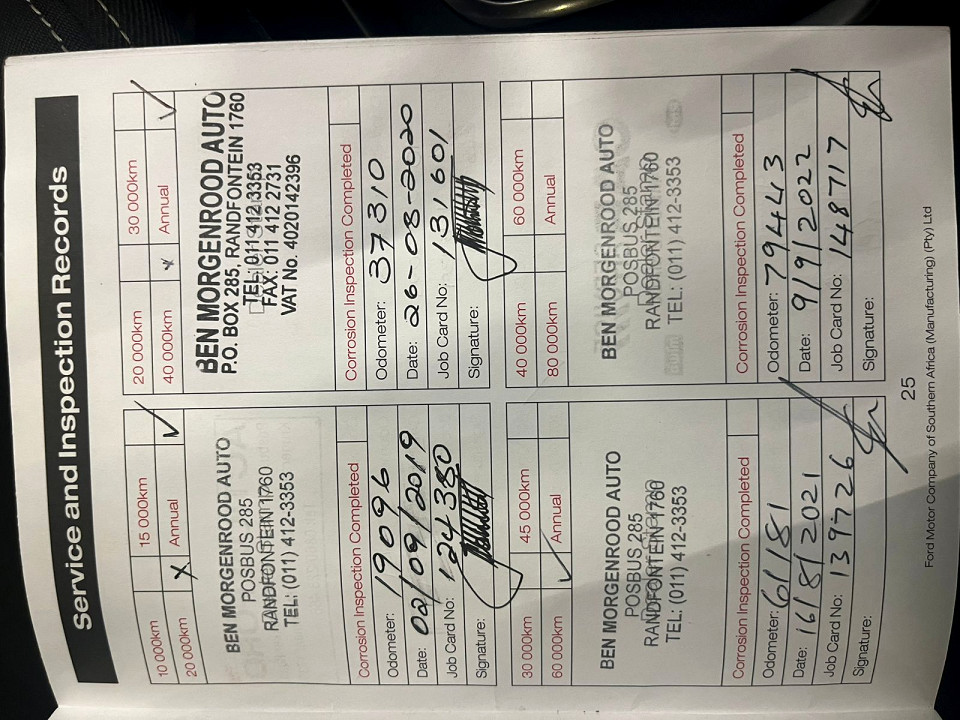 Service and Inspection Records
10 000km 15 000km
20 000km X Annual ✓
BEN MORGENROOD AUTO
POSBUS 285
RANDFONTEIN 1760
TEL: (011) 412-3353
Corrosion Inspection Completed
Odometer: 19096
Date: 02/09/2019
Job Card No: 124380
Signature:
20 000km 30 000km
40 000km x Annual ✓
BEN MORGENROOD AUTO
P.O. BOX 285, RANDFONTEIN 1760
TEL: 011 412 3353
FAX: 011 412 2731
VAT No. 4020142396
Corrosion Inspection Completed
Odometer: 37310
Date: 26-08-2020
Job Card No: 131601
Signature:
30 000km 45 000km
60 000km ✓ Annual
BEN MORGENROOD AUTO
POSBUS 285
RANDFONTEIN 1760
TEL: (011) 412-3353
Corrosion Inspection Completed
Odometer: 61181
Date: 16/8/2021
Job Card No: 139726
Signature:
40 000km 60 000km
80 000km Annual
BEN MORGENROOD AUTO
POSBUS 285
RANDFONTEIN 1760
TEL: (011) 412-3353
Corrosion Inspection Completed
Odometer: 79443
Date: 9/9/2022
Job Card No: 148717
Signature:
25
Ford Motor Company of Southern Africa (Manufacturing) (Pty) Ltd